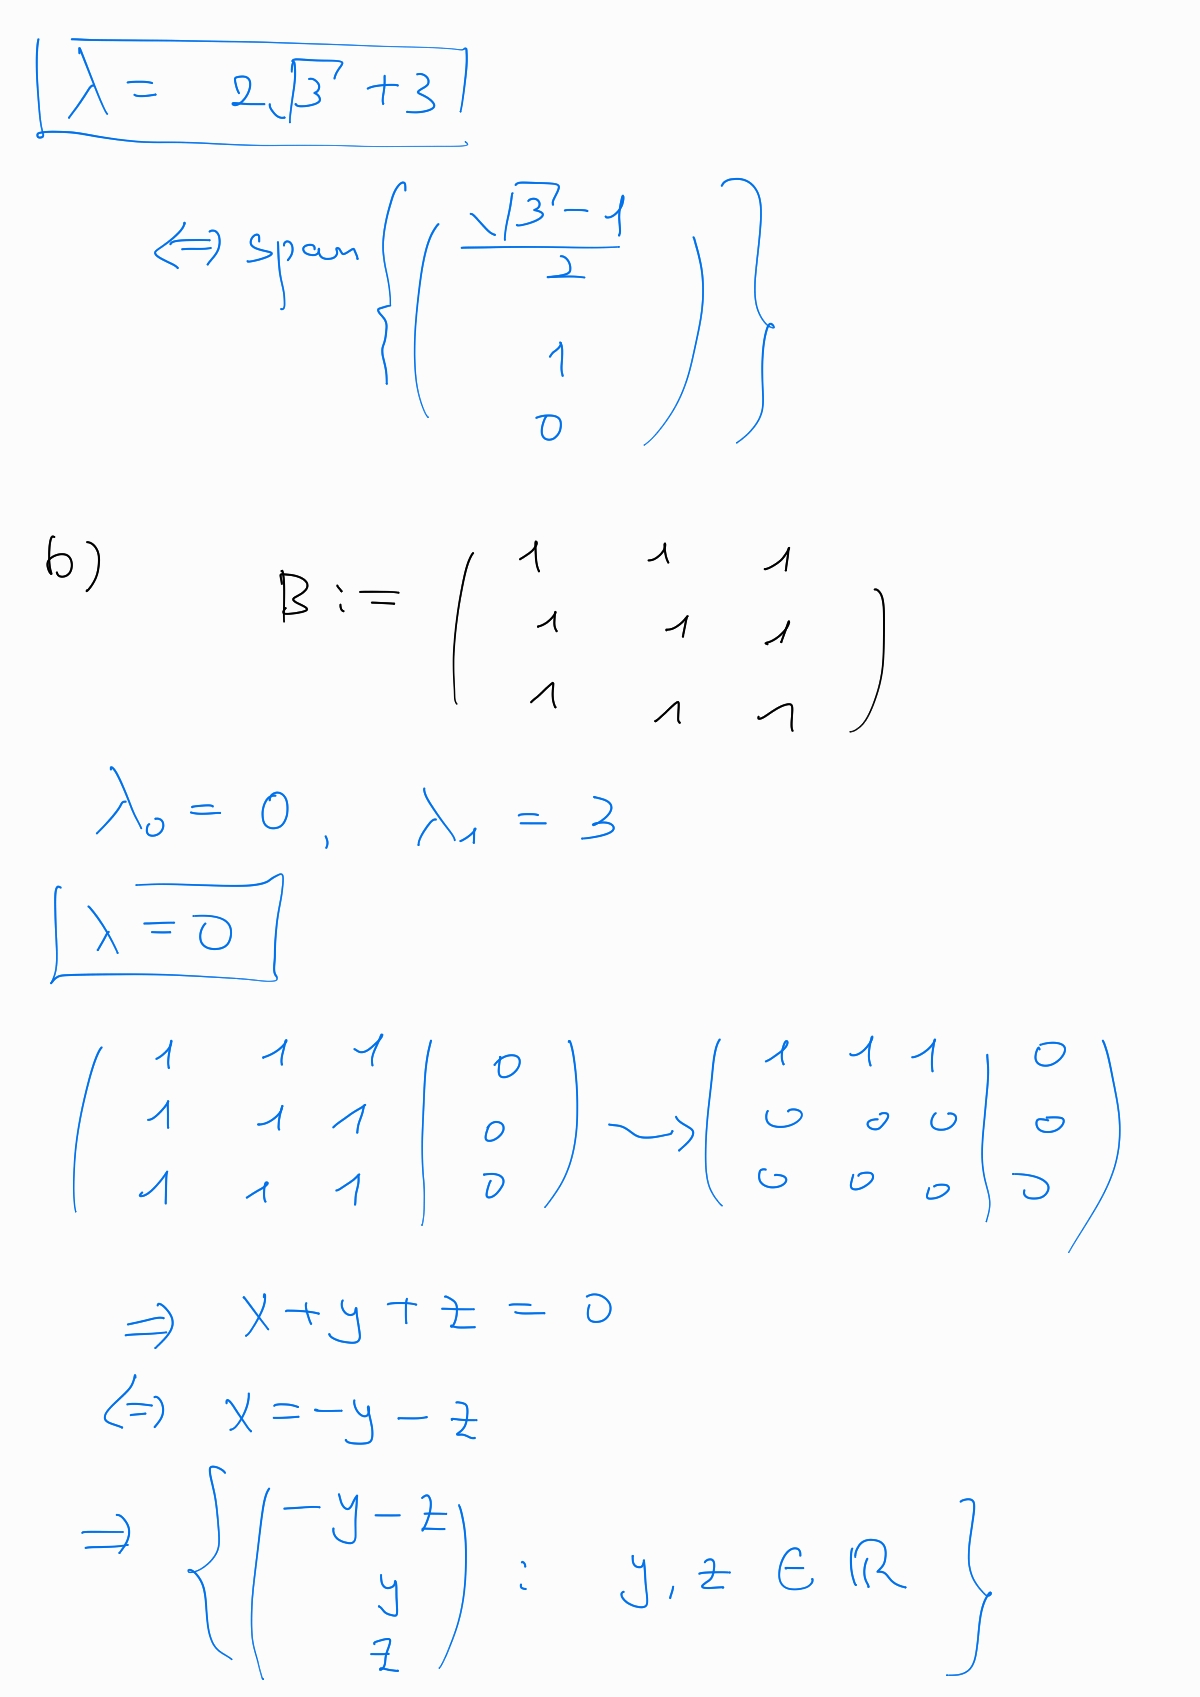 λ = 2√3 + 3
⇔ span { ( (√3 - 1)/2
1
0 ) }
b) B := ( 1 1 1
1 1 1
1 1 1 )
λ₀ = 0, λ₁ = 3
λ = 0
( 1 1 1 | 0 ) ⇝ ( 1 1 1 | 0 )
( 1 1 1 | 0 ) ( 0 0 0 | 0 )
( 1 1 1 | 0 ) ( 0 0 0 | 0 )
⇒ x + y + z = 0
⇔ x = -y - z
⇒ { ( -y - z
y
z ) : y, z ∈ ℝ }